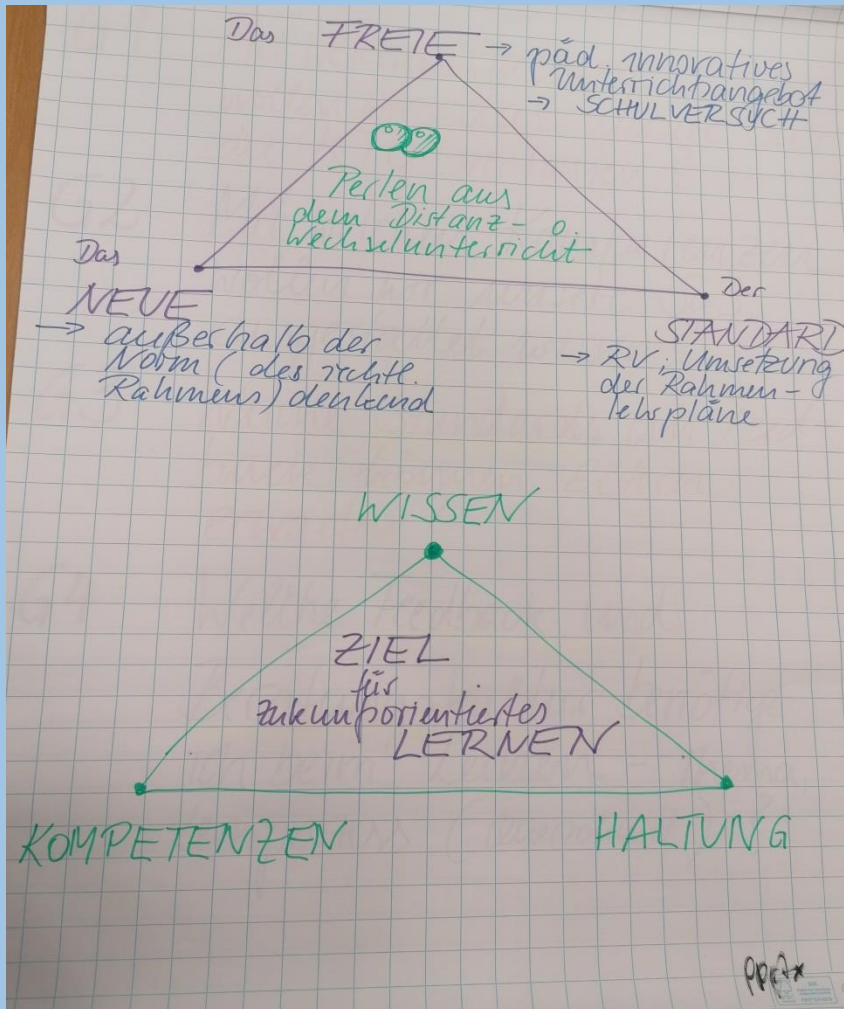 Das FREIE → päd. innovatives
Unterrichtsangebot
→ SCHULVERSUCH
Perlen aus
dem Distanz- o.
Wechselunterricht
Das
NEUE
→ außerhalb der
Norm (des rechtl.
Rahmens) denkend
Der
STANDARD
→ RV; Umsetzung
der Rahmen-
lehrpläne
WISSEN
ZIEL
für
zukunftsorientiertes
LERNEN
KOMPETENZEN
HALTUNG